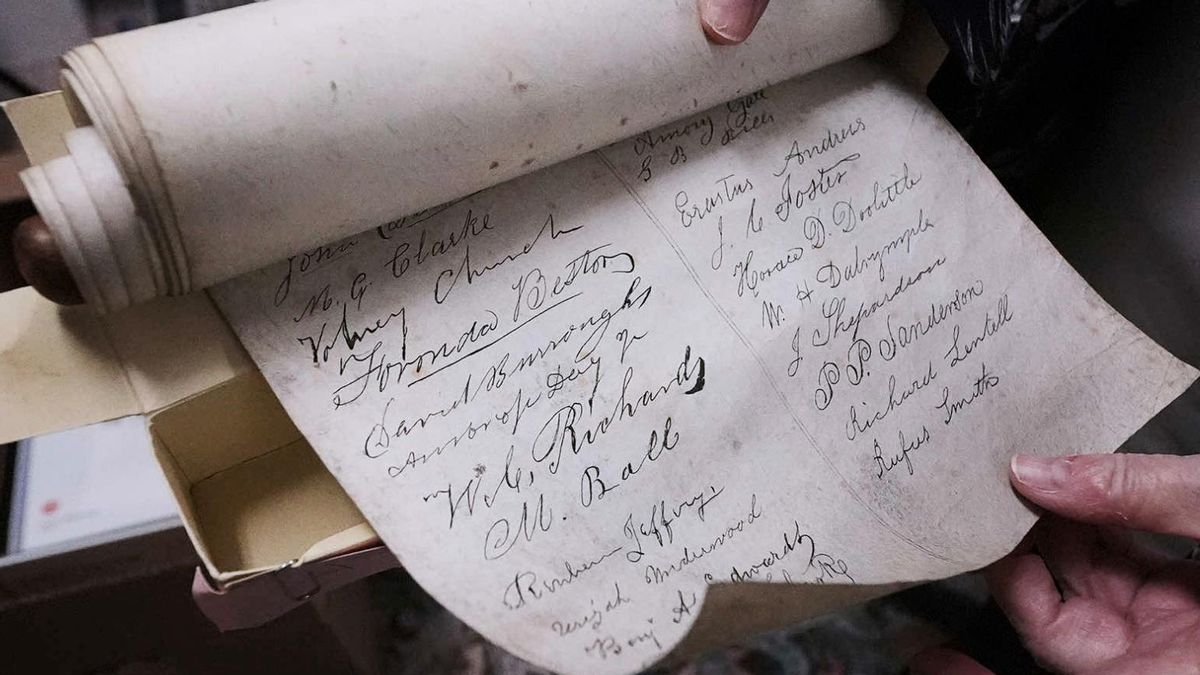 John
M. G. Clarke
Volney Church
Foronda Bestor
David Burroughs
Ambrose Day Jr
W. C. Richards
M. Ball
Reuben Jeffrys
Underwood
Benj A Edwards
Clarke
Amory Gale
S B
Erastus Andrews
J. C. Foster
Horace D. Doolittle
W. H Dalrymple
J Shepardson
P. P. Sanderson
Richard Lentell
Rufus Smith